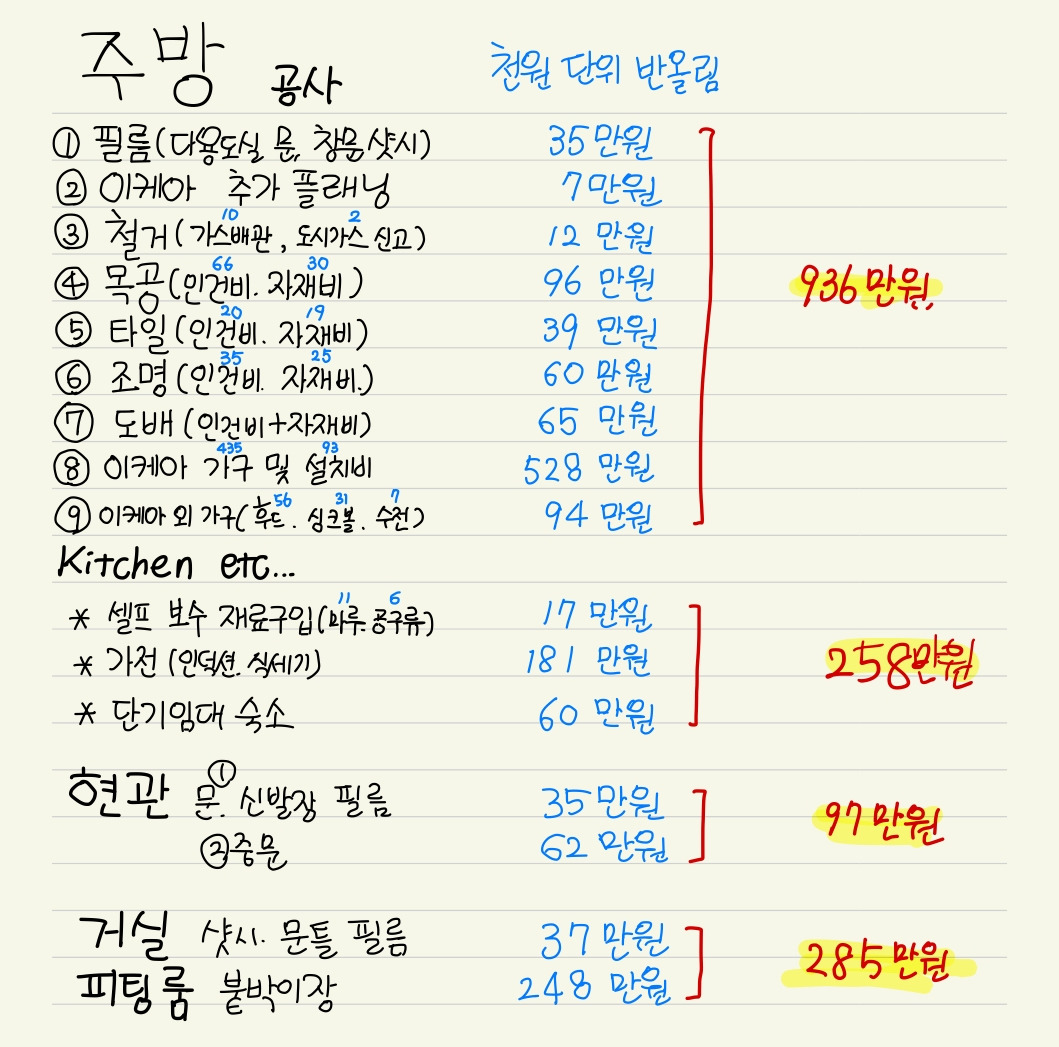 주방 공사 천원 단위 반올림
① 필름(다용도실 문, 창문샷시) 35만원
② 이케아 추가 플래닝 7만원
③ 철거(가스배관, 도시가스 신고) 10 2 12만원
④ 목공(인건비. 자재비) 66 30 96만원 936만원.
⑤ 타일(인건비. 자재비) 20 19 39만원
⑥ 조명(인건비. 자재비.) 35 25 60만원
⑦ 도배(인건비+자재비) 65만원
⑧ 이케아 가구 및 설치비 435 93 528만원
⑨ 이케아 외 가구(후드. 싱크볼. 수전) 56 31 7 94만원
Kitchen etc...
* 셀프 보수 재료구입(마루. 공구류) 11 6 17만원
* 가전(인덕션. 식세기) 181만원 258만원
* 단기임대 숙소 60만원
현관 ① 문. 신발장 필름 35만원 97만원
② 중문 62만원
거실 샷시. 문틀 필름 37만원 285만원
피팅룸 붙박이장 248만원